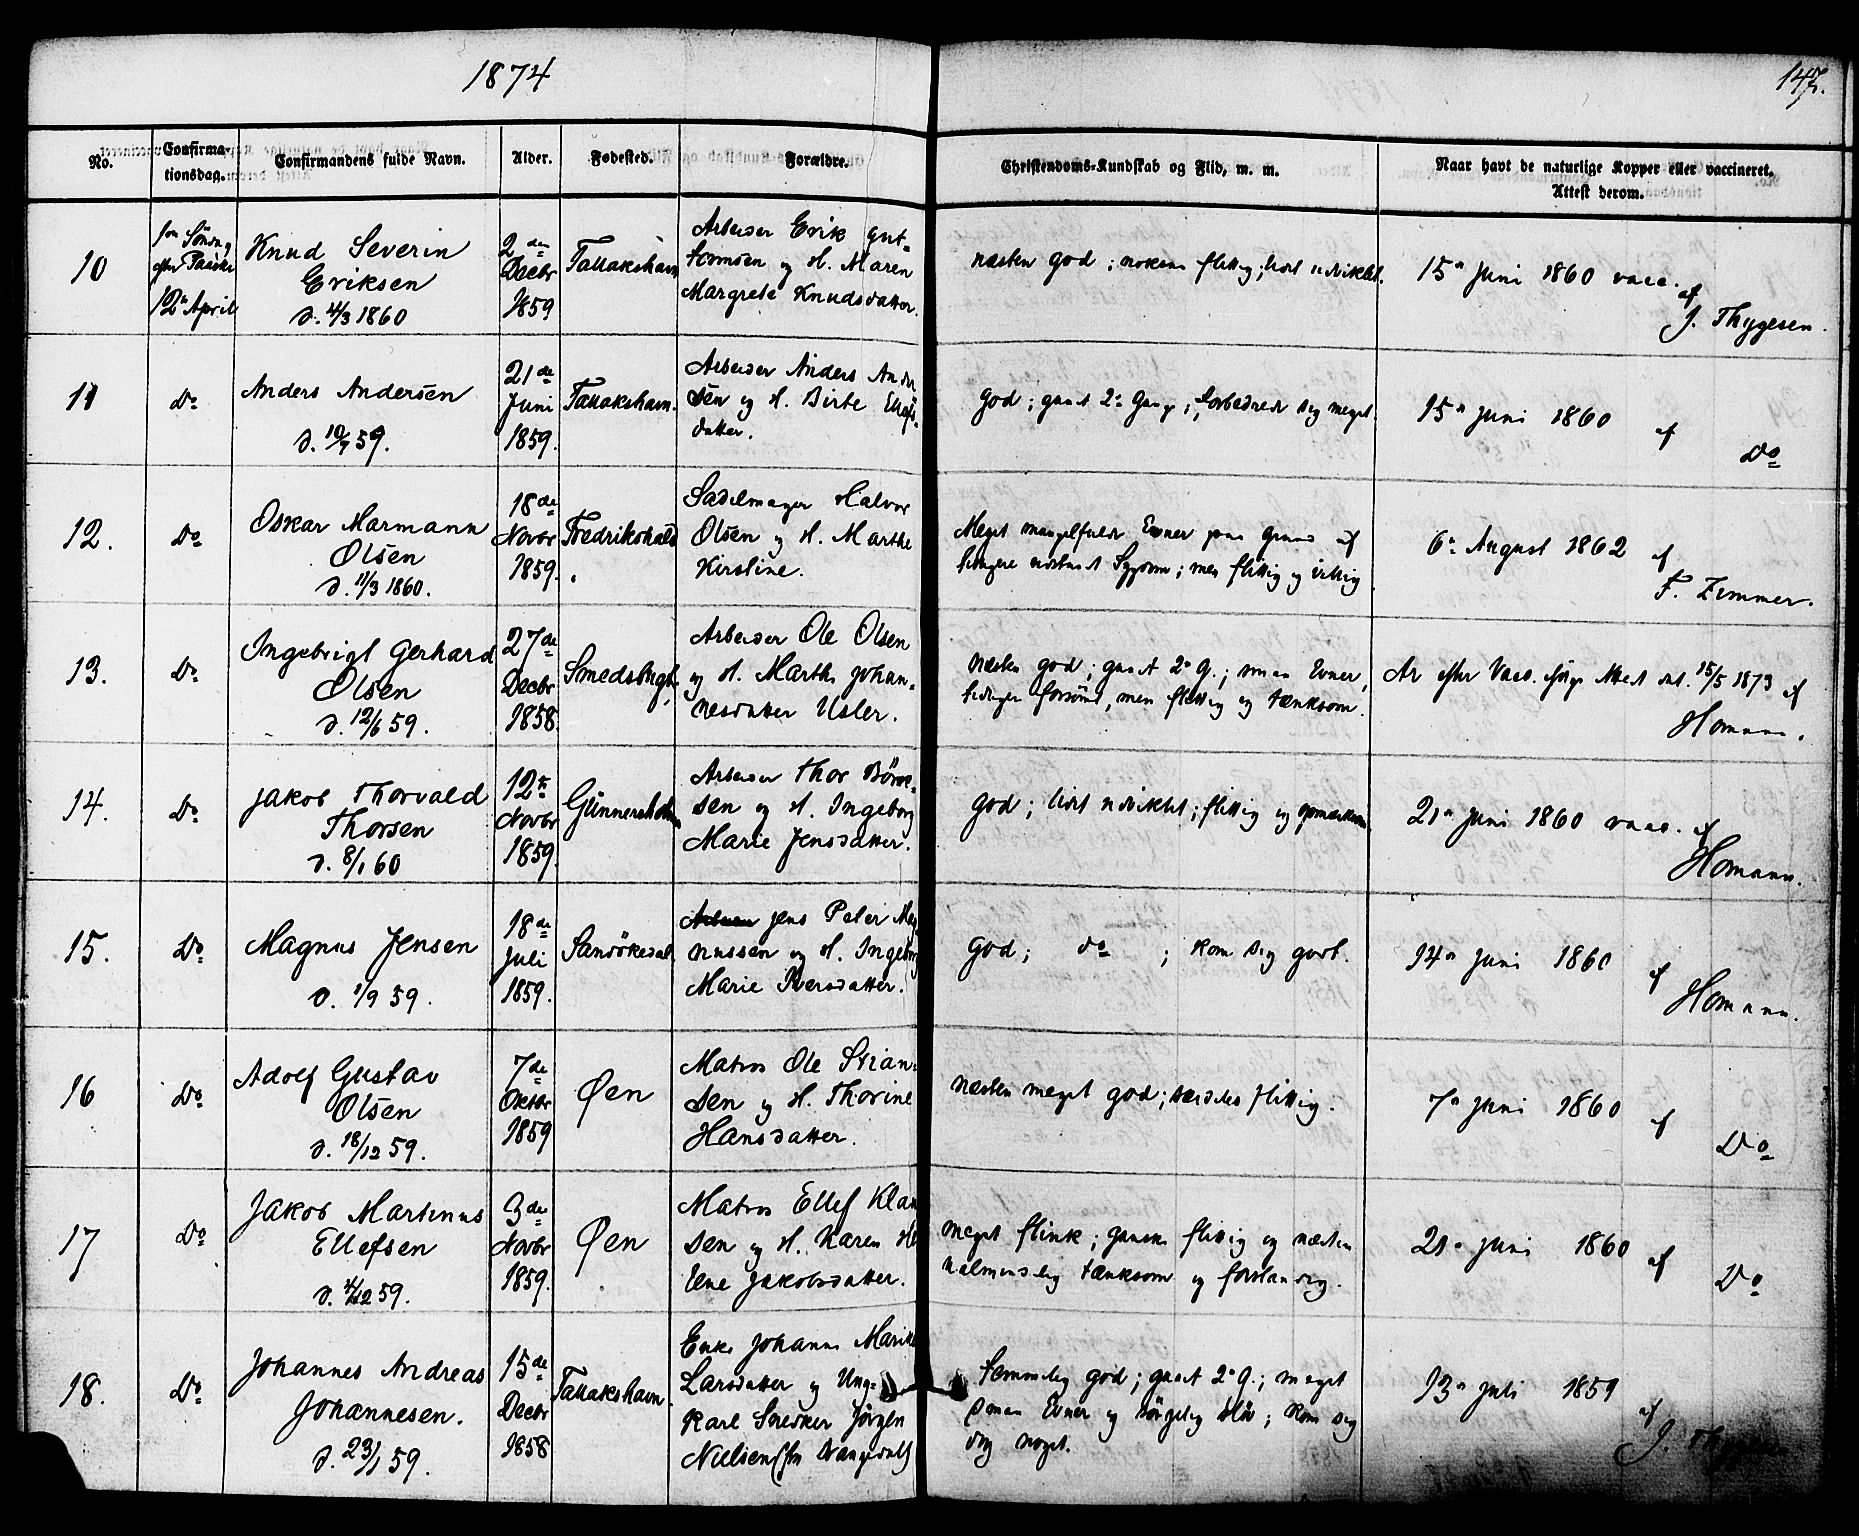 1874
147.
No.
Confirma-
tionsdag.
Confirmandens fulde Navn.
Alder.
Fødested.
Forældre.
Christendoms-Kundskab og Flid, m. m.
Naar havt de naturlige Kopper eller vaccineret.
Attest derom.
10
efter Paaske
12te April
Knud Severin
Eriksen
d. 4/3 1860
2den
Decbr
1859
Tallakshavn
Arbeider Erik Gut-
tormsen og H. Maren
Margrete Knudsdatter.
næsten god; noksaa flittig; lidt udviklet.
15de Juni 1860 vacc. af
J. Thygesen.
11
Do
Anders Andersen
d. 10/7 59.
21de
Juni
1859.
Tallakshavn.
Arbeider Anders Ander
sen og H. Birte Ellefs-
datter.
god; gaaet 2de Gange; forbedrede sig meget.
15de Juni 1860 af
Do
12.
Do
Oskar Marmann
Olsen
d. 11/3 1860.
18de
Novbr
1859.
Fredrikshald
Sadelmager Halvor
Olsen og H. Marthe
Kirstine.
Meget mangelfulde Evner paa Grund af
Sygdom; men flittig og villig
6te August 1862 af
F. Zimmer.
13.
Do
Ingebrigt Gerhard
Olsen
d. 12/6 59.
27de
Decbr
1858.
Smedsbugt.
Arbeider Ole Olsen
og H. Marthe Johan-
nesdatter Usler.
næsten god; gaaet 2de G.; smaa Evner,
tidligere forsømt, men flittig og tænksom.
Ar efter Vacc. ifølge Attest dat. 15/5 1873 af
Homann.
14.
Do
Jakob Thorvald
Thorsen
d. 8/1 60
12te
Novbr
1859.
Gunnersholm
Arbeider Thor Børre-
sen og H. Ingeborg
Marie Jensdatter.
god; lidt udviklet; flittig og opmærksom.
21de Juni 1860 vacc. af
Homann.
15.
Do
Magnus Jensen
d. 1/9 59.
18de
Juli
1859.
Sandøkedal.
Jens Peter Mag
nussen og H. Ingeborg
Marie Iversdatter.
god; do ; kom sig godt.
14de Juni 1860 af
Homann.
16
Do
Adolf Gustav
Olsen
d. 18/12 59.
7de
Oktbr
1859
Øen
Matros Ole Stian-
sen og H. Thorine
Hansdatter.
næsten meget god; særdeles flittig.
7de Juni 1860 af
Do
17
Do
Jakob Martinus
Ellefsen
d. 4/12 59.
3die
Novbr
1859.
Øen
Matros Ellef Klau
sen og H. Karen He
lene Jakobsdatter.
meget flink; ganske flittig og næsten
ualmindelig tænksom og forstandig.
21de Juni 1860 af
Do
18.
Do
Johannes Andreas
Johannesen.
d. 23/1 59.
15de
Decbr
1858
Tallakshavn.
Enke Johanne Marie
Larsdatter og Ung-
karl Snedker Jörgen
Nielsen (fra Drangedal)
temmelig god; gaaet 2de G.; meget
smaa Evner og sørgelig sløv; kom sig
dog noget.
13de Juli 1859 af
J. Thygesen